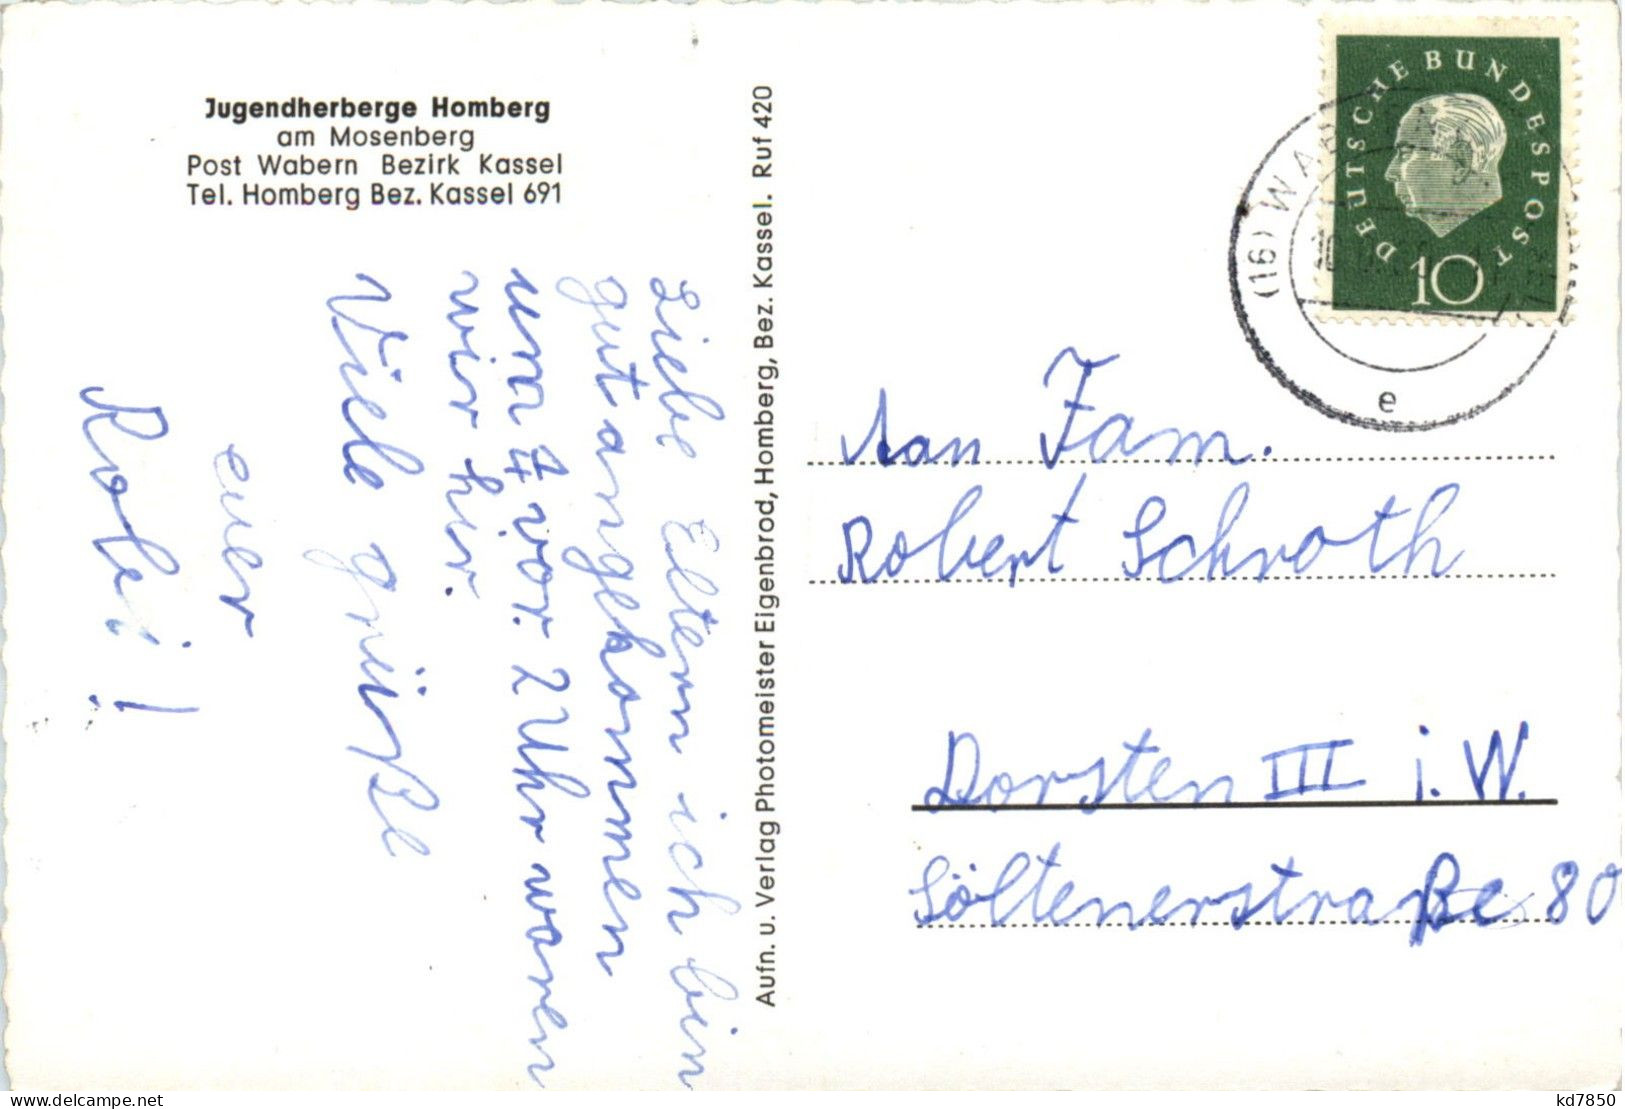 Jugendherberge Homberg
am Mosenberg
Post Wabern Bezirk Kassel
Tel. Homberg Bez. Kassel 691
Liebe Eltern ich bin
gut angekommen
um 4 vor. 2 Uhr waren
wir hir.
Viele grüße
euer
Robi!
Aufn. u. Verlag Photomeister Eigenbrod, Homberg, Bez. Kassel. Ruf 420
DEUTSCHE BUNDESPOST
10
(16) WABERN
e
Aan Fam.
Robert Schroth
Dorsten III i. W.
Söltenerstraße 80
kd7850